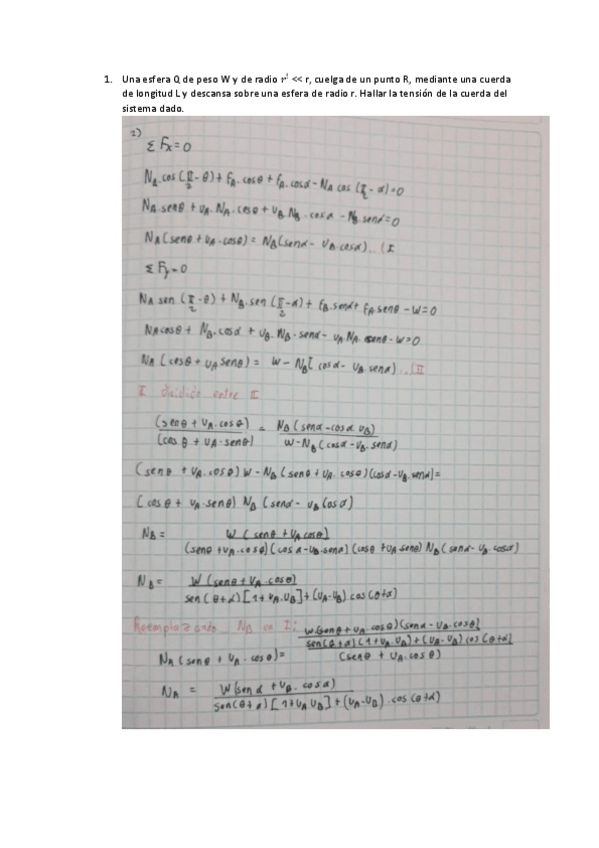 1. Una esfera Q de peso W y de radio r¹ << r, cuelga de un punto R, mediante una cuerda
de longitud L y descansa sobre una esfera de radio r. Hallar la tensión de la cuerda del
sistema dado.
2)
Σ Fx = 0
N_A.cos(π/2 - θ) + f_A.cosθ + f_A.cosα - N_A cos(π/2 - α) = 0
N_A.senθ + u_A.N_A.cosθ + u_B.N_B.cosα - N_B.senα = 0
N_A(senθ + u_A.cosθ) = N_B(senα - u_B.cosα)..(I
Σ Fy = 0
N_A sen(π/2 - θ) + N_B.sen(π/2 - α) + f_B.senα + f_A senθ - W = 0
N_A cosθ + N_B.cosα + u_B.N_B.senα - u_A N_A senθ - W = 0
N_A(cosθ + u_A senθ) = W - N_B[cosα - u_B senα)..(II
I dividido entre I
(senθ + u_A.cosθ) / (cosθ + u_A.senθ) = N_B(senα - cosα u_B) / W - N_B(cosα - u_B.senα)
(senθ + u_A.cosθ)W - N_B(senθ + u_A.cosθ)(cosα - u_B.senα) =
(cosθ + u_A.senθ) N_B (senα - u_B cosα)
N_B = W(senθ + u_A cosθ) / (senθ + u_A.cosθ)(cosα - u_B.senα)(cosθ + u_A senθ) N_B (senα - u_B.cosα)
N_B = W(senθ + u_A.cosθ) / sen(θ+α)[1 + u_A.u_B] + (u_A - u_B) cos(θ+α)
Reemplazando N_B en I:
N_A(senθ + u_A.cosθ) = W(senθ + u_A cosθ)(senα - u_B.cosθ) / sen(θ+α)(1 + u_A.u_B) + (u_A - u_B) cos(θ+α) / (senθ + u_A.cosθ)
N_A = W(senα + u_B.cosα) / sen(θ+α)[1 + u_A u_B] + (u_A - u_B).cos(θ+α)